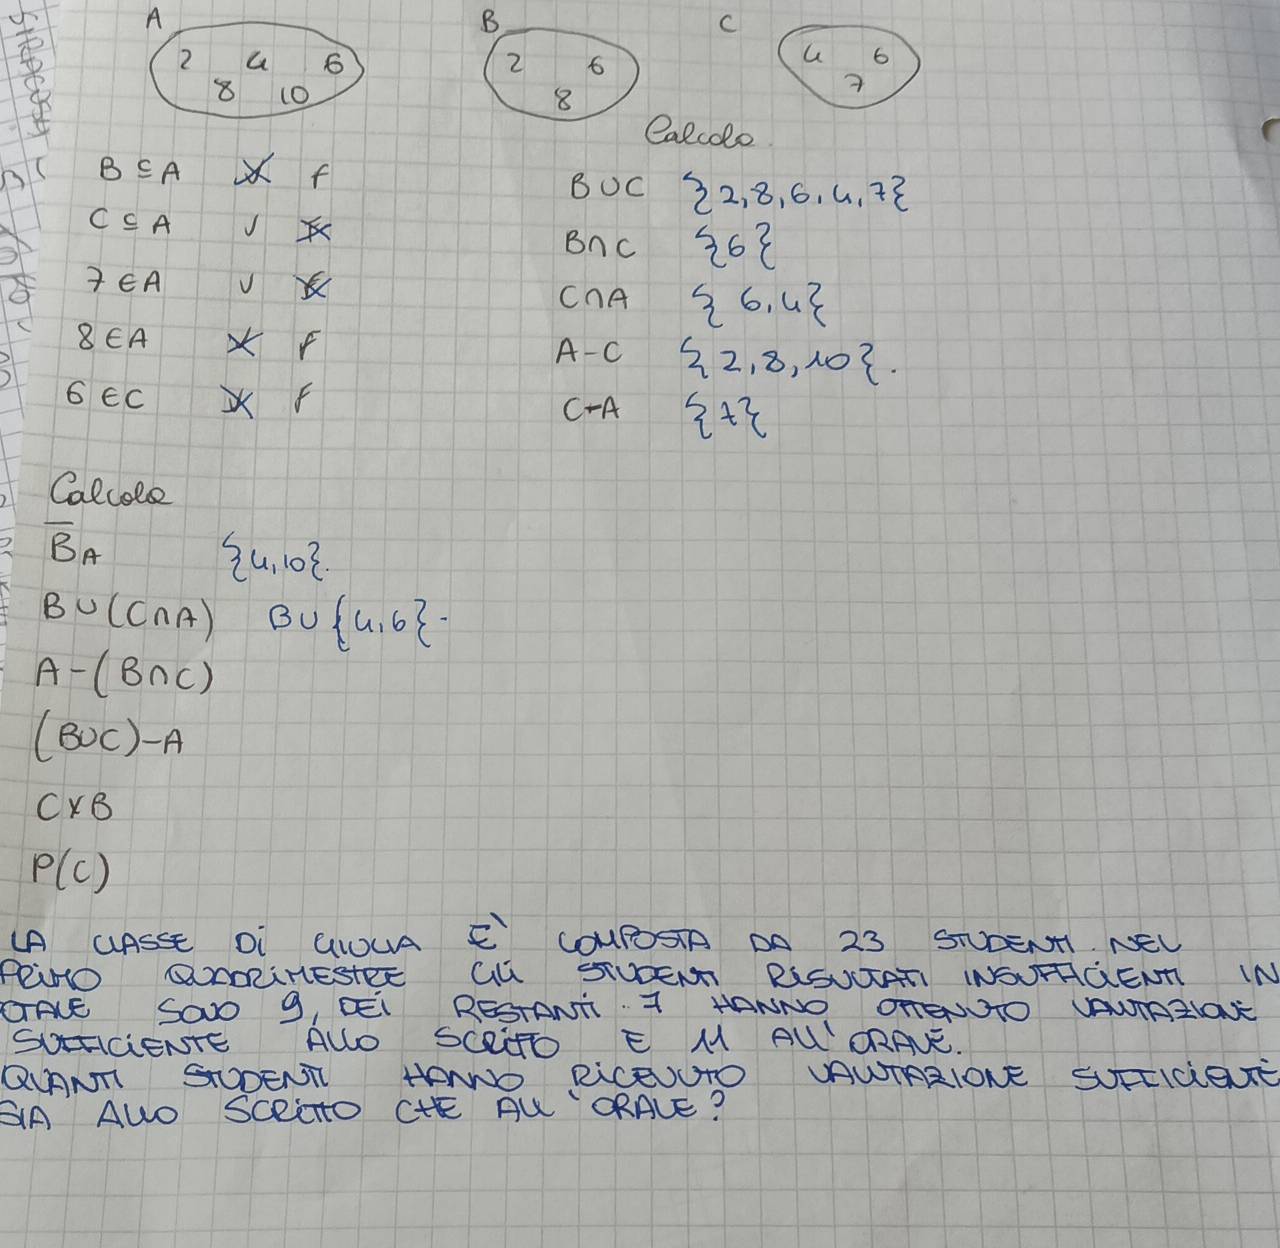 A B C
2 4 6 8 10
2 6 8
4 6 7
Calcola
B ⊆ A V F
C ⊆ A V F
7 ∈ A V F
8 ∈ A V F
6 ∈ C V F
B∪C {2,8,6,4,7}
B∩C {6}
C∩A {6,4}
A-C {2,8,10}.
C-A {7}
Calcola
B̅A {4,10}.
B∪(C∩A) B∪{4,6}-
A-(B∩C)
(B∪C)-A
C×B
P(C)
LA CLASSE DI GIULIA E' COMPOSTA DA 23 STUDENTI. NEL
PRIMO QUADRIMESTRE GLI STUDENTI RISULTATI INSUFFICIENTI IN
OTALE SONO 9, DEI RESTANTI 7 HANNO OTTENUTO VALUTAZIONE
SUFFICIENTE ALLO SCRITTO E 11 ALL'ORALE.
QUANTI STUDENTI HANNO RICEVUTO VALUTAZIONE SUFFICIENTE
SIA ALLO SCRITTO CHE ALL'ORALE?